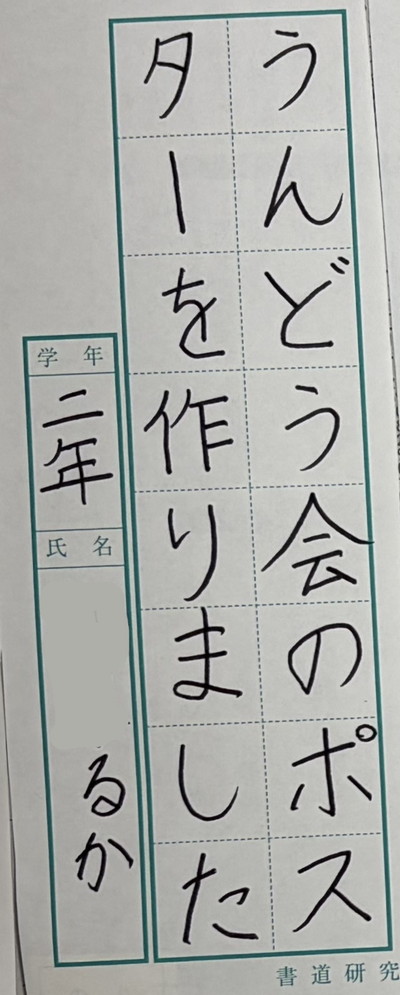 うんどう会のポス
ターを作りました
学年
二年
氏名
るか
書道研究